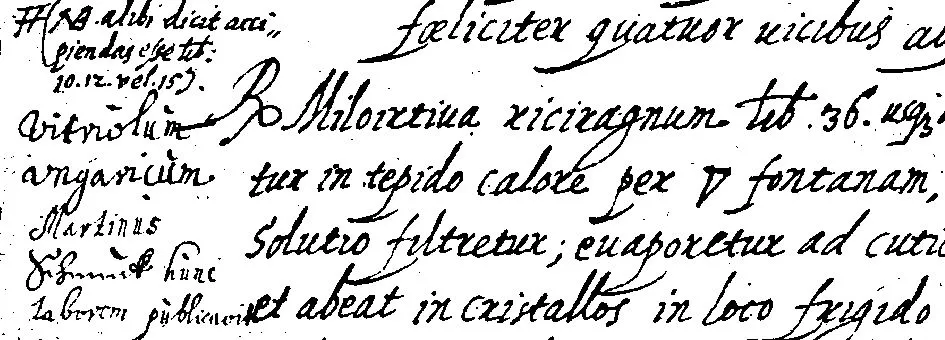 (NB. alibi dicit acci„
piendas esse lib:
10. 12. vel. 15).
vitriolum
ungaricum
Martinus
Schmuck hunc
Laborem publicavit
fœliciter quatuor vicibus
℞ Miloirtiua riciragnum lib. 36.
tur in tepido calore per ▽ fontanam,
Solutio filtretur; evaporetur ad
et abeat in cristallos in loco frigido